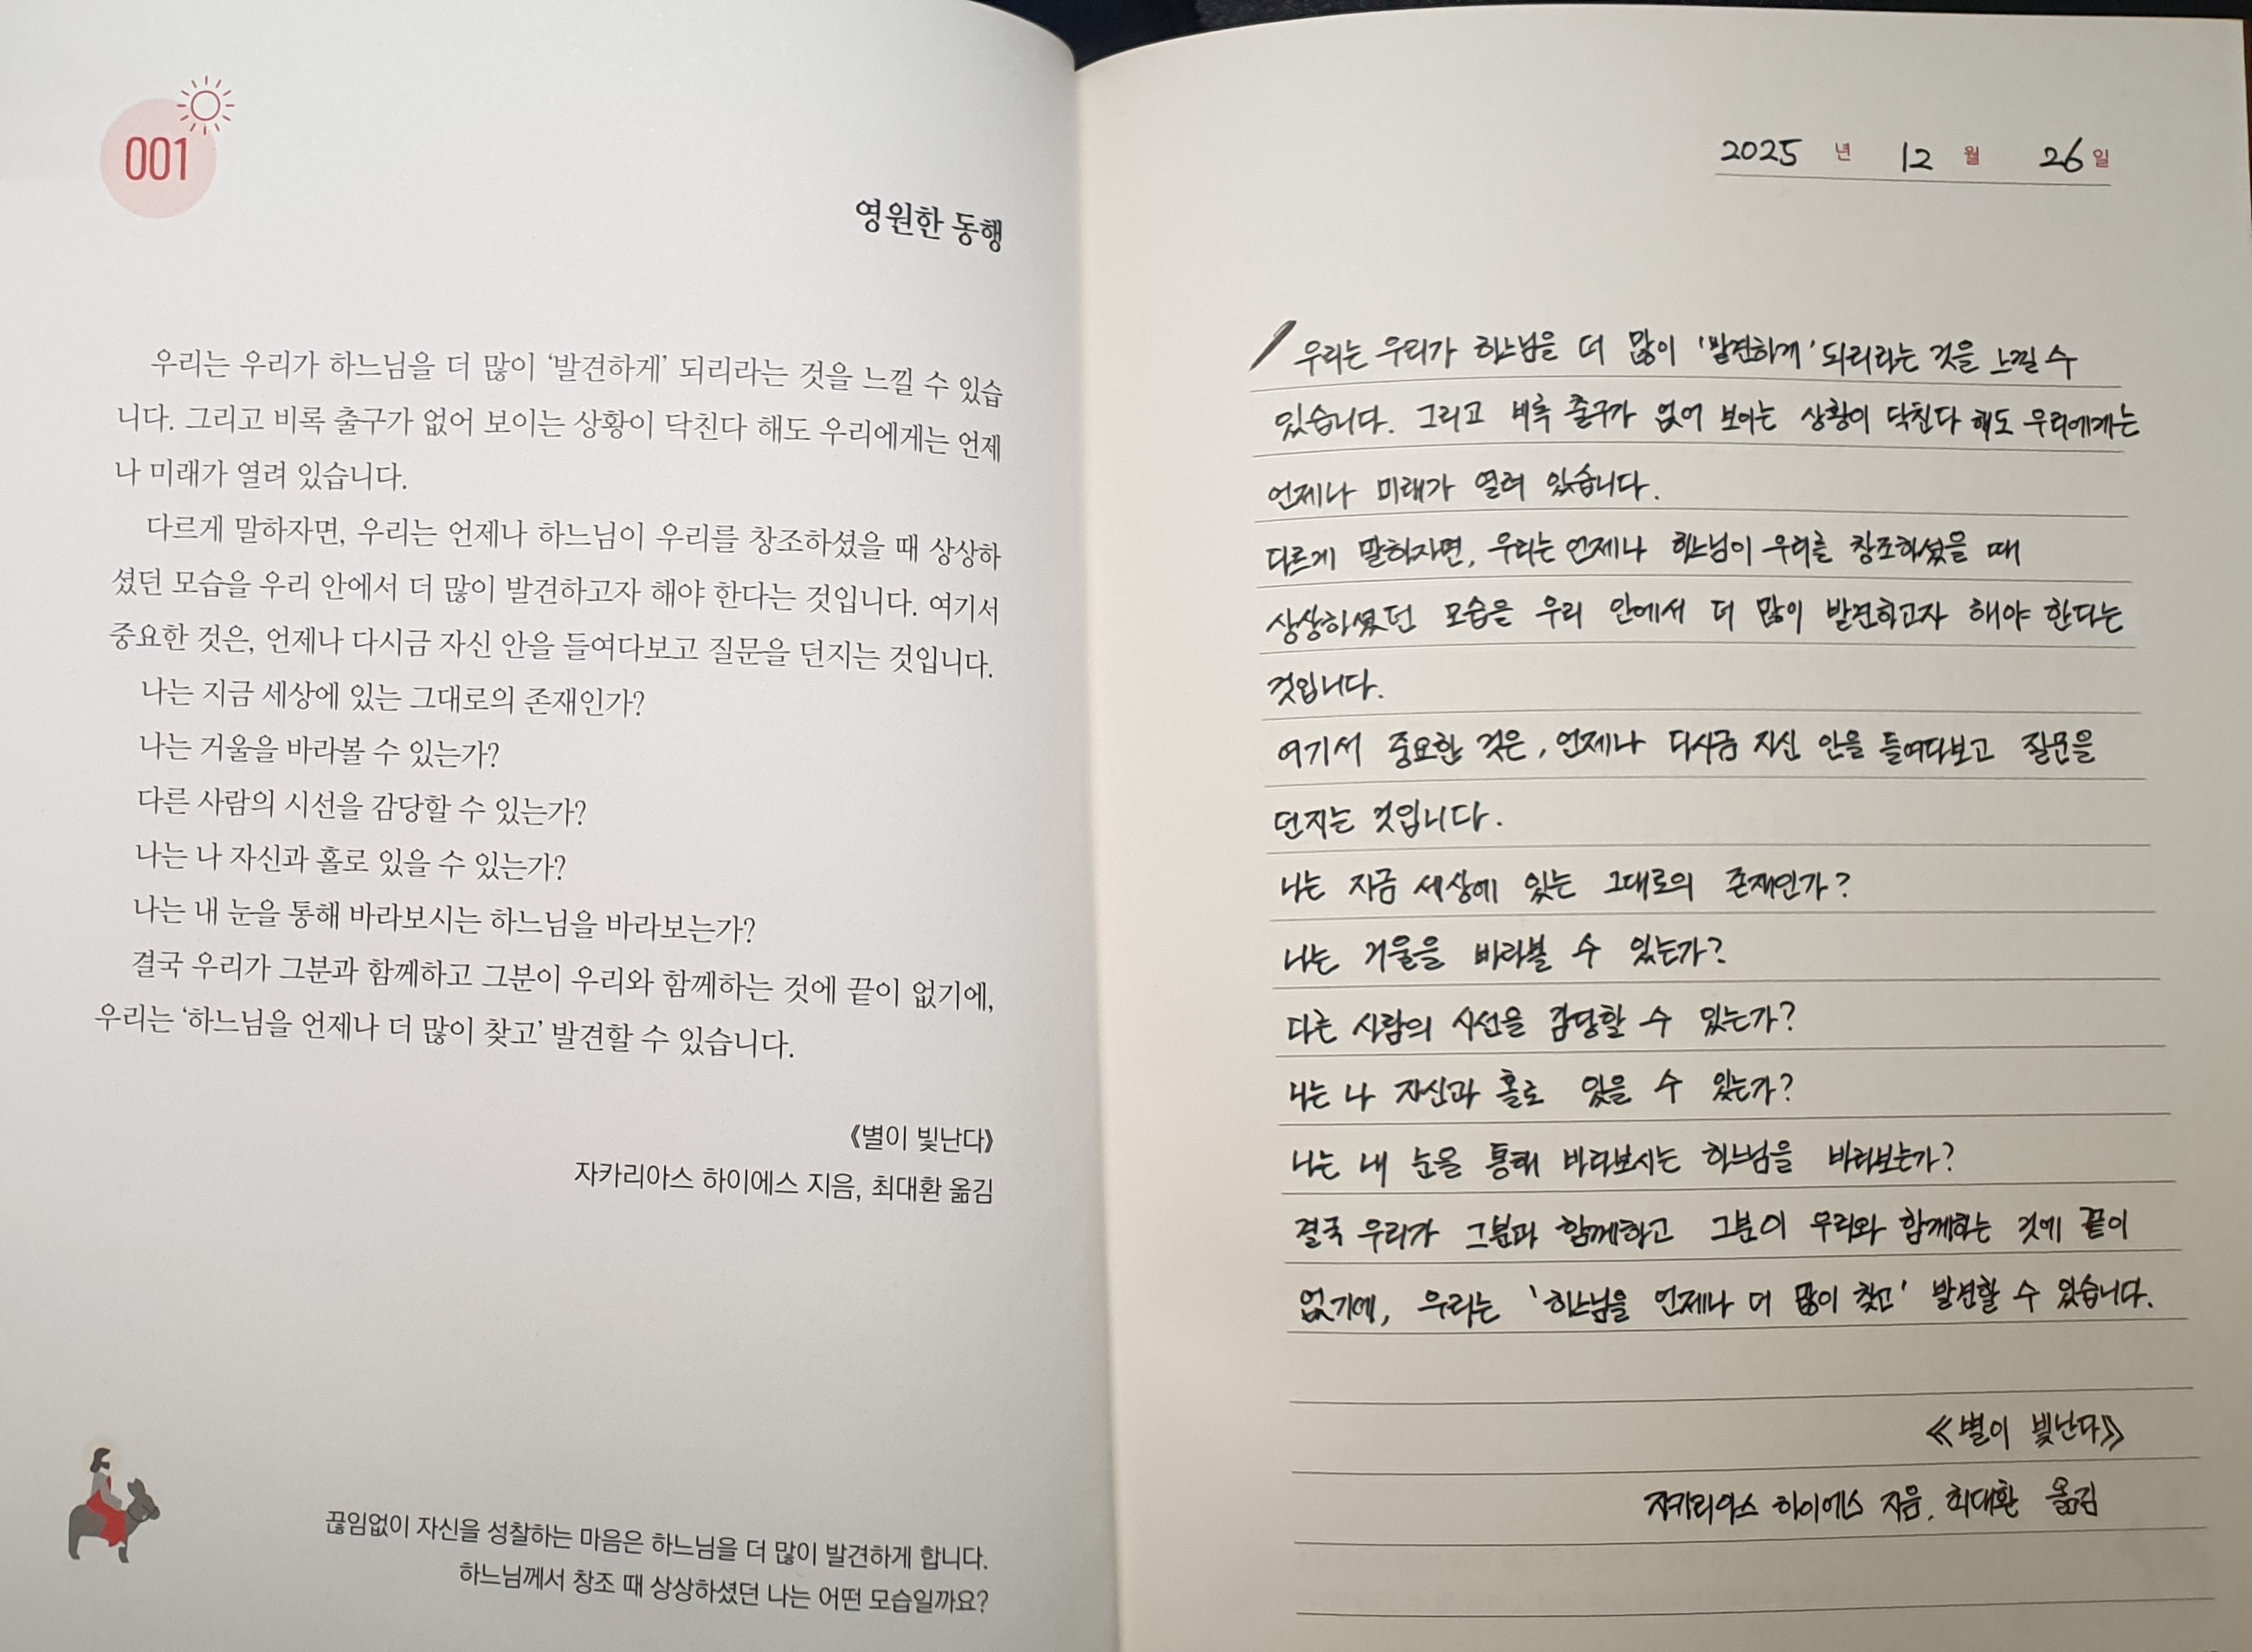 001
영원한 동행
우리는 우리가 하느님을 더 많이 ‘발견하게’ 되리라는 것을 느낄 수 있습
니다. 그리고 비록 출구가 없어 보이는 상황이 닥친다 해도 우리에게는 언제
나 미래가 열려 있습니다.
다르게 말하자면, 우리는 언제나 하느님이 우리를 창조하셨을 때 상상하
셨던 모습을 우리 안에서 더 많이 발견하고자 해야 한다는 것입니다. 여기서
중요한 것은, 언제나 다시금 자신 안을 들여다보고 질문을 던지는 것입니다.
나는 지금 세상에 있는 그대로의 존재인가?
나는 거울을 바라볼 수 있는가?
다른 사람의 시선을 감당할 수 있는가?
나는 나 자신과 홀로 있을 수 있는가?
나는 내 눈을 통해 바라보시는 하느님을 바라보는가?
결국 우리가 그분과 함께하고 그분이 우리와 함께하는 것에 끝이 없기에,
우리는 ‘하느님을 언제나 더 많이 찾고’ 발견할 수 있습니다.
《별이 빛난다》
자카리아스 하이에스 지음, 최대환 옮김
끊임없이 자신을 성찰하는 마음은 하느님을 더 많이 발견하게 합니다.
하느님께서 창조 때 상상하셨던 나는 어떤 모습일까요?
2025 년 12 월 26 일
우리는 우리가 하느님을 더 많이 '발견하게' 되리라는 것을 느낄 수
있습니다. 그리고 비록 출구가 없어 보이는 상황이 닥친다 해도 우리에게는
언제나 미래가 열려 있습니다.
다르게 말하자면, 우리는 언제나 하느님이 우리를 창조하셨을 때
상상하셨던 모습을 우리 안에서 더 많이 발견하고자 해야 한다는
것입니다.
여기서 중요한 것은, 언제나 다시금 자신 안을 들여다보고 질문을
던지는 것입니다.
나는 지금 세상에 있는 그대로의 존재인가?
나는 거울을 바라볼 수 있는가?
다른 사람의 시선을 감당할 수 있는가?
나는 나 자신과 홀로 있을 수 있는가?
나는 내 눈을 통해 바라보시는 하느님을 바라보는가?
결국 우리가 그분과 함께하고 그분이 우리와 함께하는 것에 끝이
없기에, 우리는 '하느님을 언제나 더 많이 찾고' 발견할 수 있습니다.
《별이 빛난다》
자카리아스 하이에스 지음, 최대환 옮김